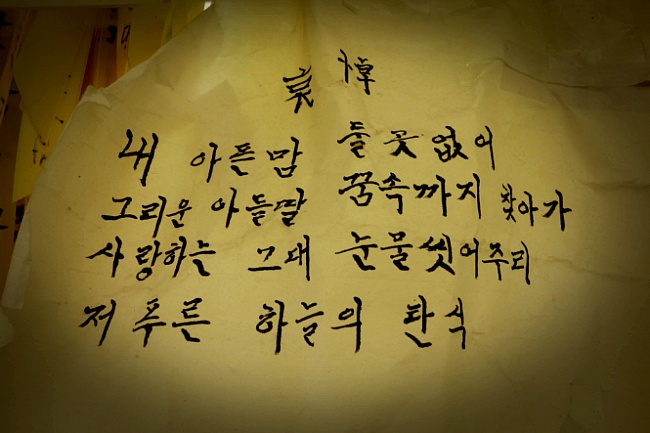 哀悼
내 아픈맘 둘곳없어
그리운 아들딸 꿈속까지 찾아가
사랑하는 그대 눈물씻어주리
저 푸른 하늘의 탄식